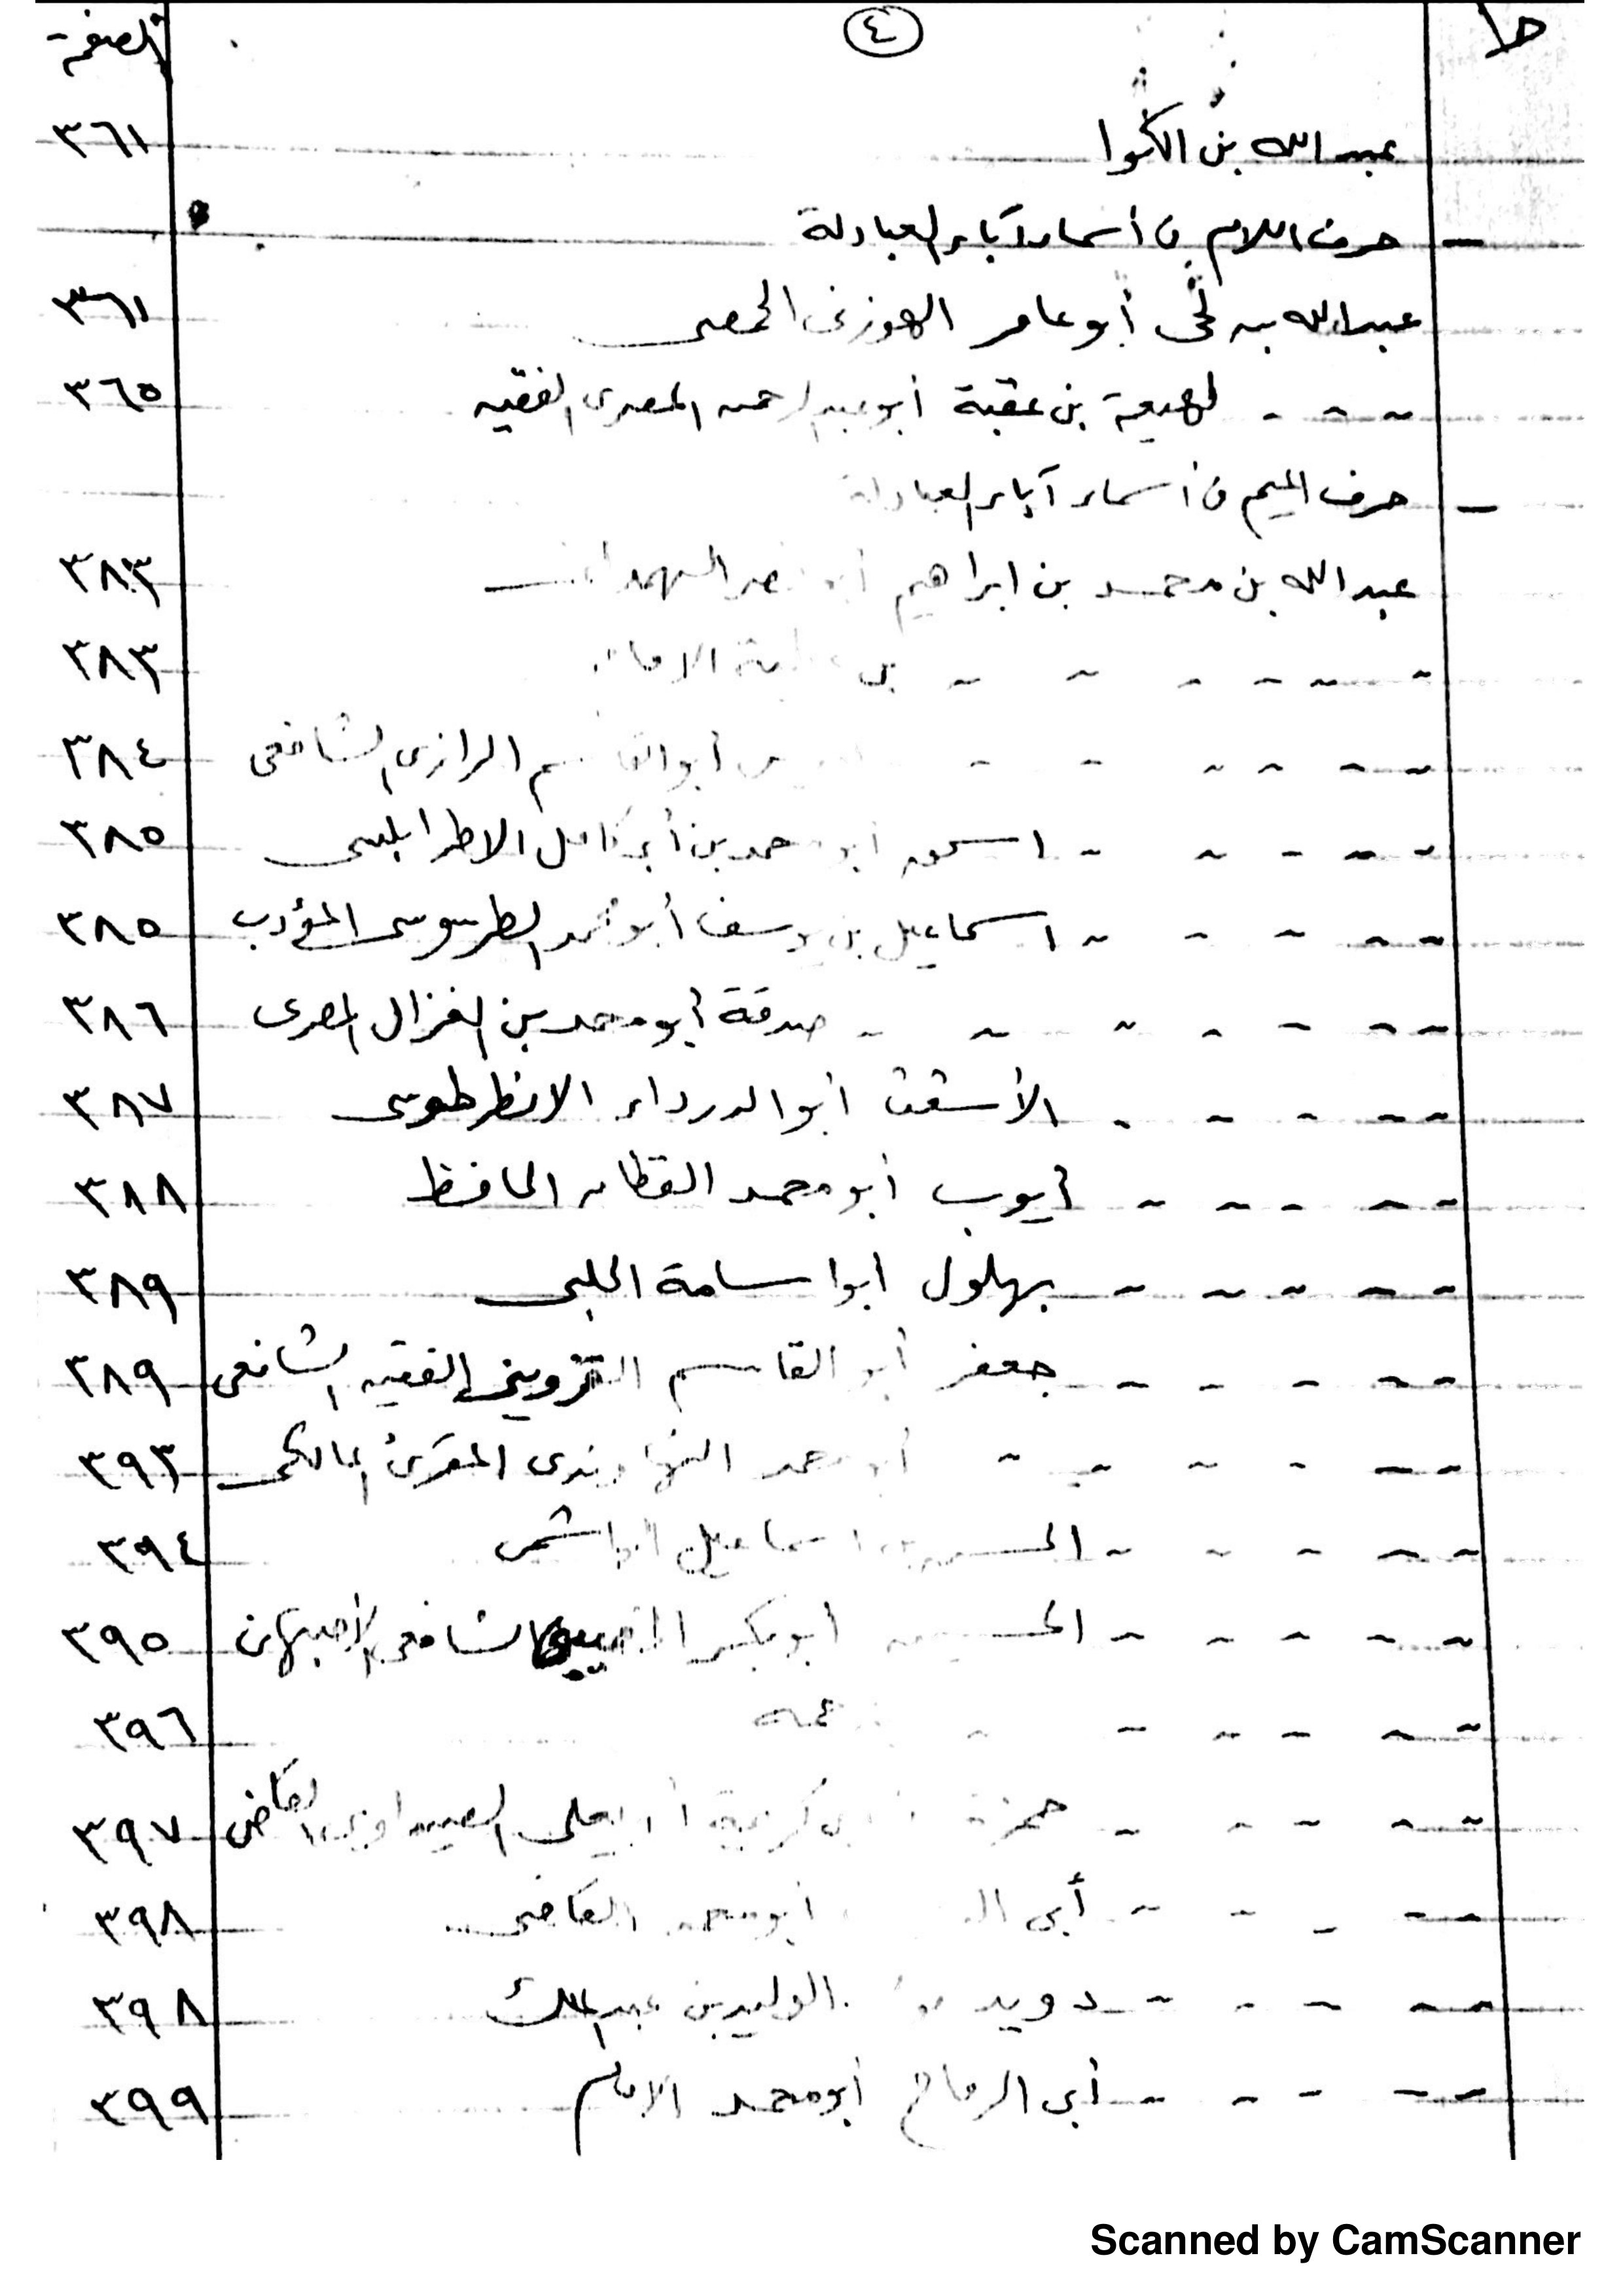 ط ٤ الصفحة
عبد الله بن الكوا ٣٦١
— حرف اللام في أسماء آباء العبادلة
عبد الله بن لحي أبو عامر الهوزني الحمصي ٣٦١
~ ~ - لهيعة بن عقبة أبو عبد الرحمن المصري الفقيه ٣٦٥
— حرف الميم في اسماء آباء العبادلة
عبد الله بن محمد بن ابراهيم أبو نصر الهمداني ٣٨٣
- ~ - - ~ ~ بن ٣٨٣
~ - - - - - أبو القاسم الرازي الشافعي ٣٨٤
- ~ - - - اسحق أبو محمد بن أبي كامل الاطرابلسي ٣٨٥
~ ~ - - ~ اسماعيل بن يوسف أبو محمد الطرسوسي المؤدب ٣٨٥
~ ~ - - ~ ~ - صدقة أبو محمد بن الغزال المصري ٣٨٦
~ ~ - - - الأسقف أبو الدرداء الانطرطوسي ٣٨٧
- ~ - ~ - أيوب أبو محمد القطان الحافظ ٣٨٨
- ~ - ~ - بهلول ابو اسامة الحلبي ٣٨٩
- ~ - - - جعفر أبو القاسم القزويني الفقيه الشافعي ٣٨٩
- — - ~ - ~ أبو محمد النهاوندي المقرئ المالكي ٣٩٣
~ ~ - - - الحسن بن اسماعيل ٣٩٤
~ - - - - الحسين أبو بكر الشافعي الأصبهاني ٣٩٥
~ ~ - - - - ٣٩٦
~ ~ - - - حمزة بن أبي كريمة أبو يعلى الصيداوي القاضي ٣٩٧
- ~ - - ~ أبي أبو محمد القاضي ٣٩٨
~ ~ ~ - ~ دويد الوليد بن عبد الملك ٣٩٨
~ ~ - - - أبي الرماح أبو محمد الامام ٣٩٩
Scanned by CamScanner